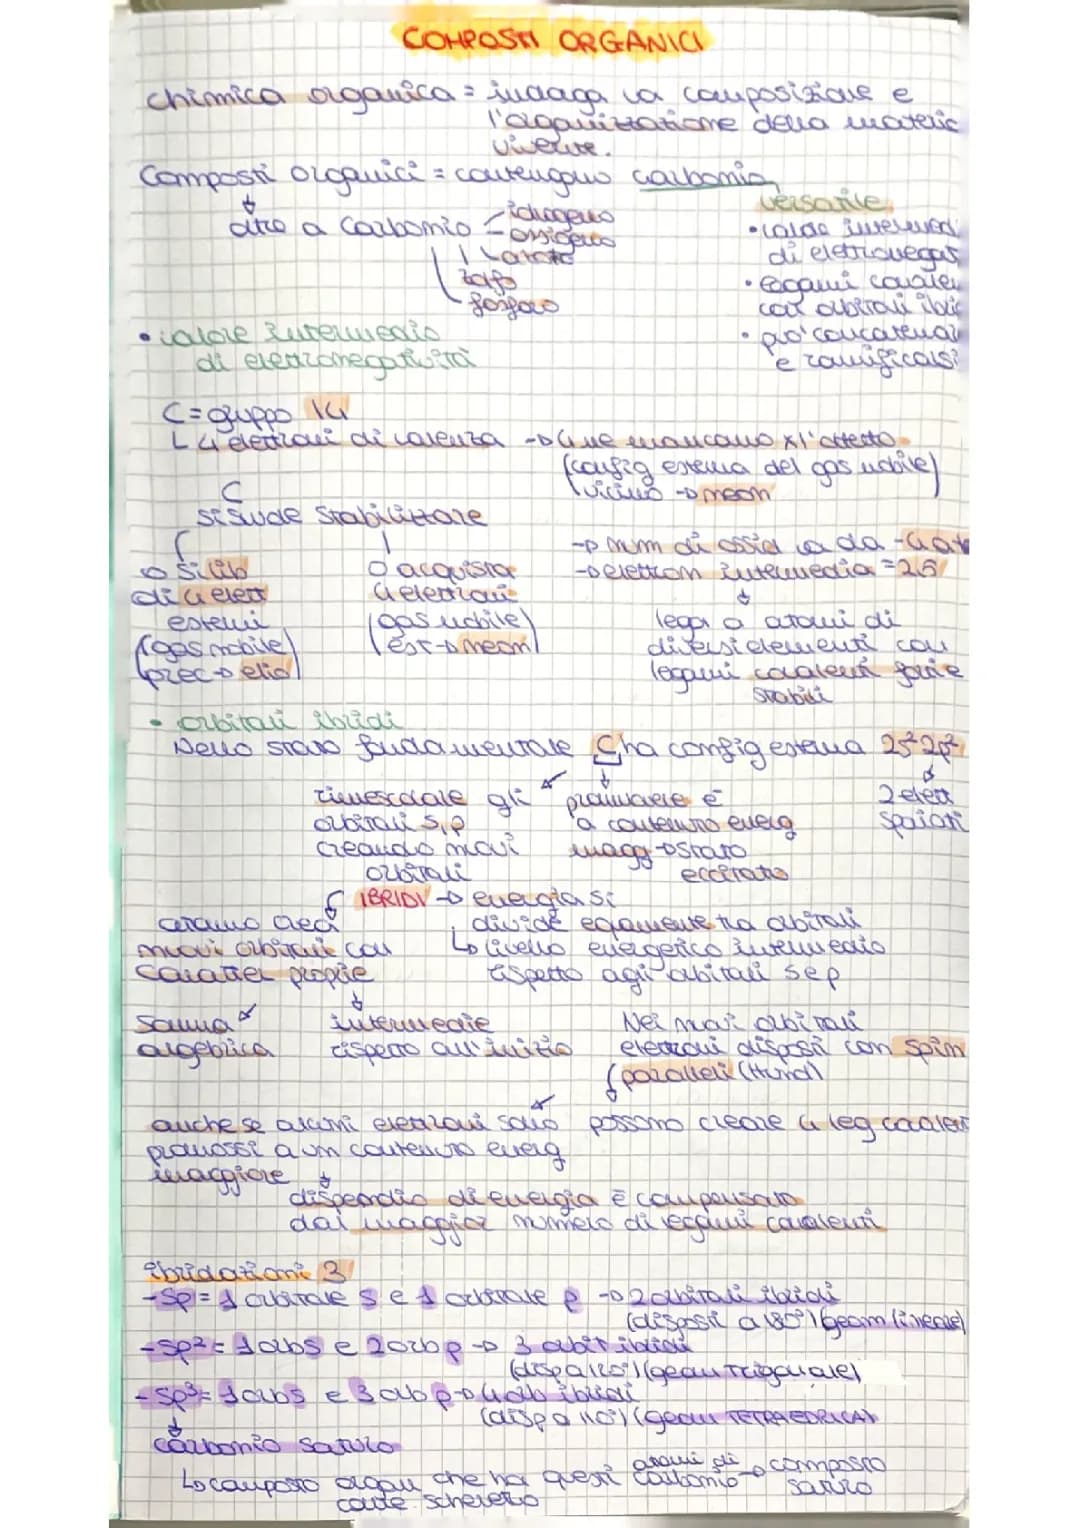 COMPOSTI ORGANICI
chimica organica = indaga la composizione e
l'organizzazione della materia
vivente.
Composti organici = contengono carbonio
versatile
oltre a carbonio
idrogeno
ossigeno
azoto
zolfo
fosforo
• valore intermed
di elettronegat
• legami covalen
con orbitali ibri
• può concatenar
e ramificarsi
• valore intermedio
di elettronegatività
C = gruppo 14
4 elettroni di valenza → 4 ne mancano x l'ottetto
(config esterna del gas nobile)
vicino → neon
C
si vuole stabilizzare
o si lib
di 4 elett
esterni
(gas nobile)
prec → elio
o acquista
4 elettroni
(gas nobile)
est → neon
→ num di ossid va da -4 a +
→ elettron intermedia = 2,5
lega a atomi di
diversi elementi con
legami covalenti forti e
stabili
• orbitali ibridi
Nello stato fondamentale C ha config esterna 2s² 2p²
2 elett
spaiati
rimescolare gli
orbitali s,p
creando nuovi
orbitali
promuovere e⁻
a contenuto energ
magg → stato
eccitato
IBRIDI → energia si
divide equamente tra orbitali
↳ livello energetico intermedio
rispetto agli orbitali s e p
nuovi orbitali con
caratter proprie
somma
algebrica
intermedie
rispetto all'inizio
Nei nuovi orbitali
elettroni disposti con spin
paralleli (Hund)
possono creare 4 leg covalen
anche se alcuni elettroni sono
promossi a un contenuto energ
maggiore
dispendio di energia è compensato
dal maggior numero di legami covalenti
ibridazioni 3
- sp = 1 orbitale s e 1 orbitale p → 2 orbitali ibridi
(disposti a 180°) (geom lineare)
- sp² = 1 orb s e 2 orb p → 3 orbit ibridi
(disp a 120°) (geom trigonale)
- sp³ = 1 orb s e 3 orb p → 4 orb ibridi
(disp a 110°) (geom TETRAEDRICA)
carbonio saturo
↳ composto organ che ha questi atomi di carbonio → composto
come scheletro saturo